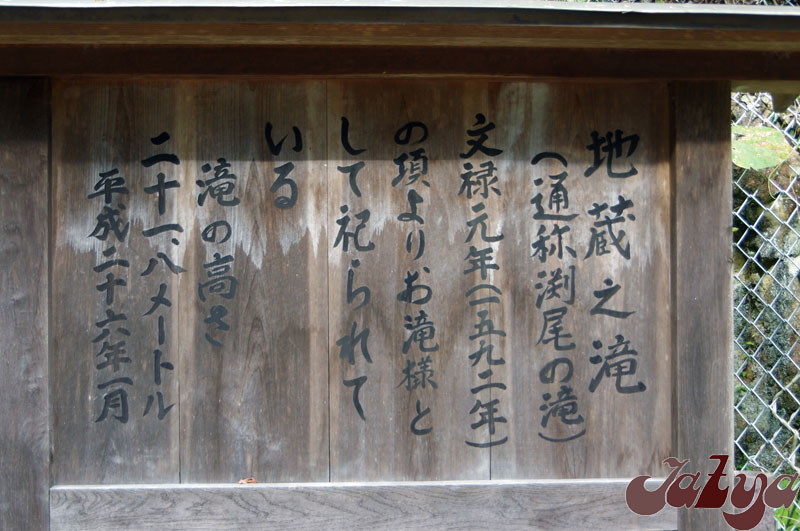 地蔵之滝
(通称渕尾の滝)
文禄元年(一五九二年)
の項よりお滝様と
して祀られて
いる
滝の高さ
二十一、八メートル
平成二十六年一月
Jatya